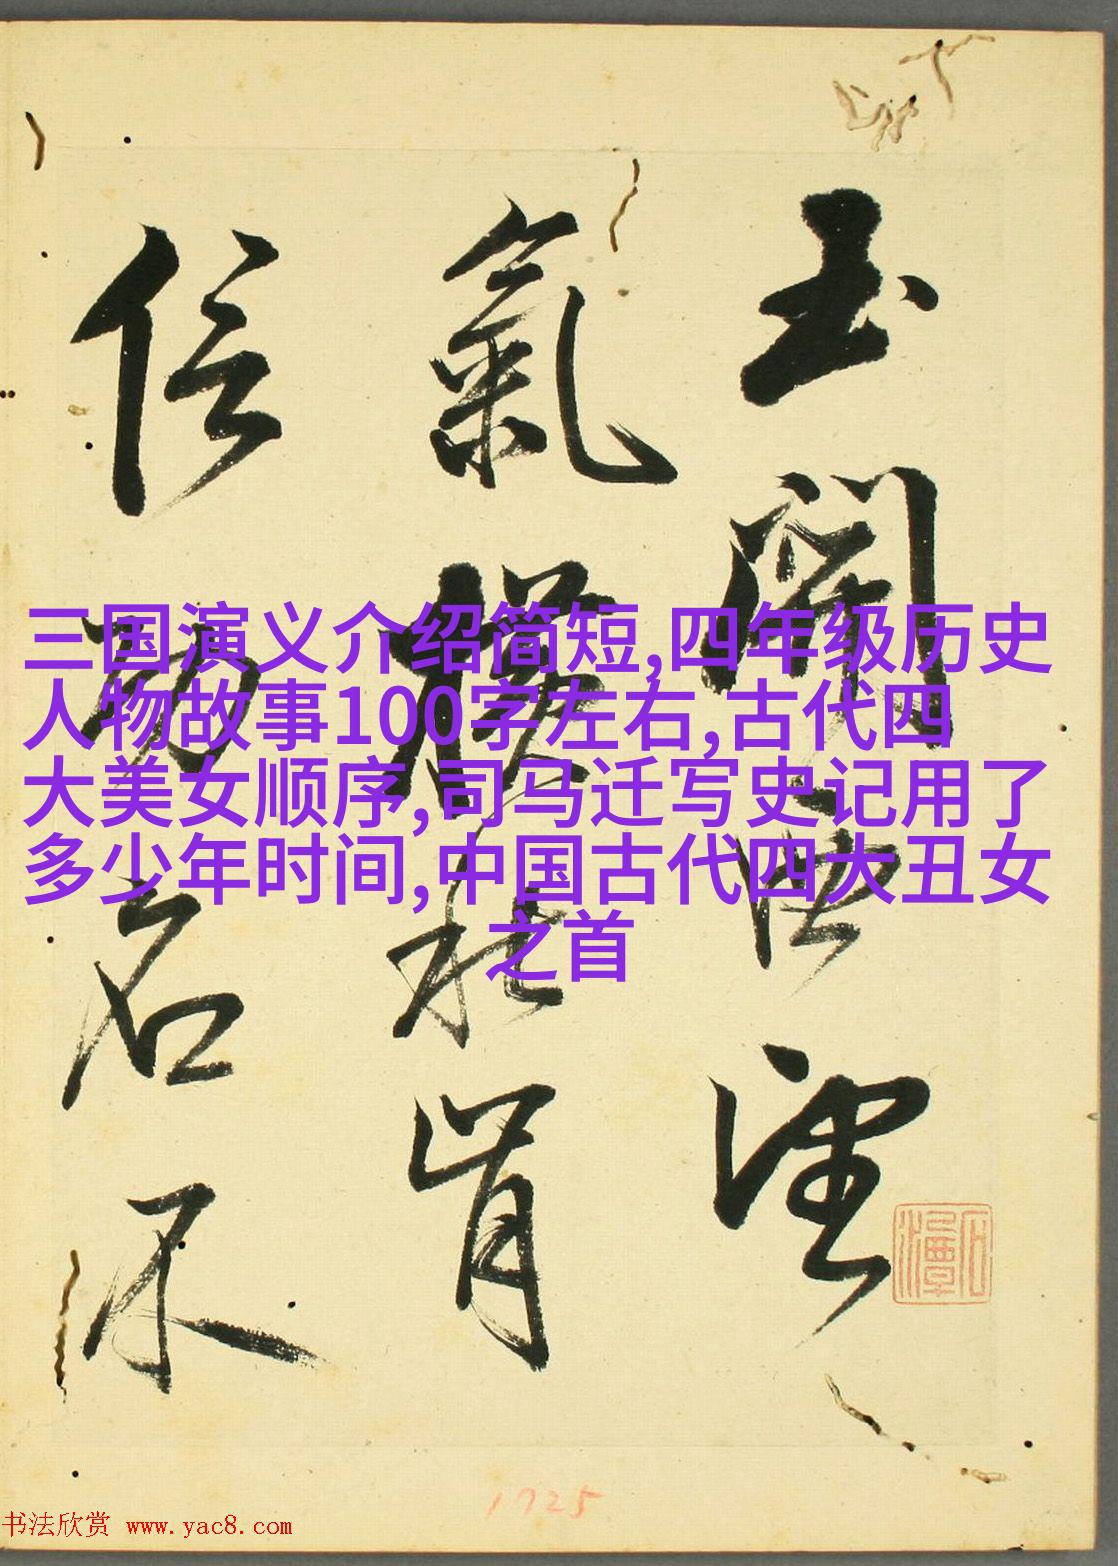 三国演义介绍简短,四年级历史
人物故事100字左右,古代四
大美女顺序,司马迁写史记用了
多少年时间,中国古代四大丑女
之首
玉關西望
氣橫秋肯
信功名不
石潭
1725
书法欣赏 www.yac8.com